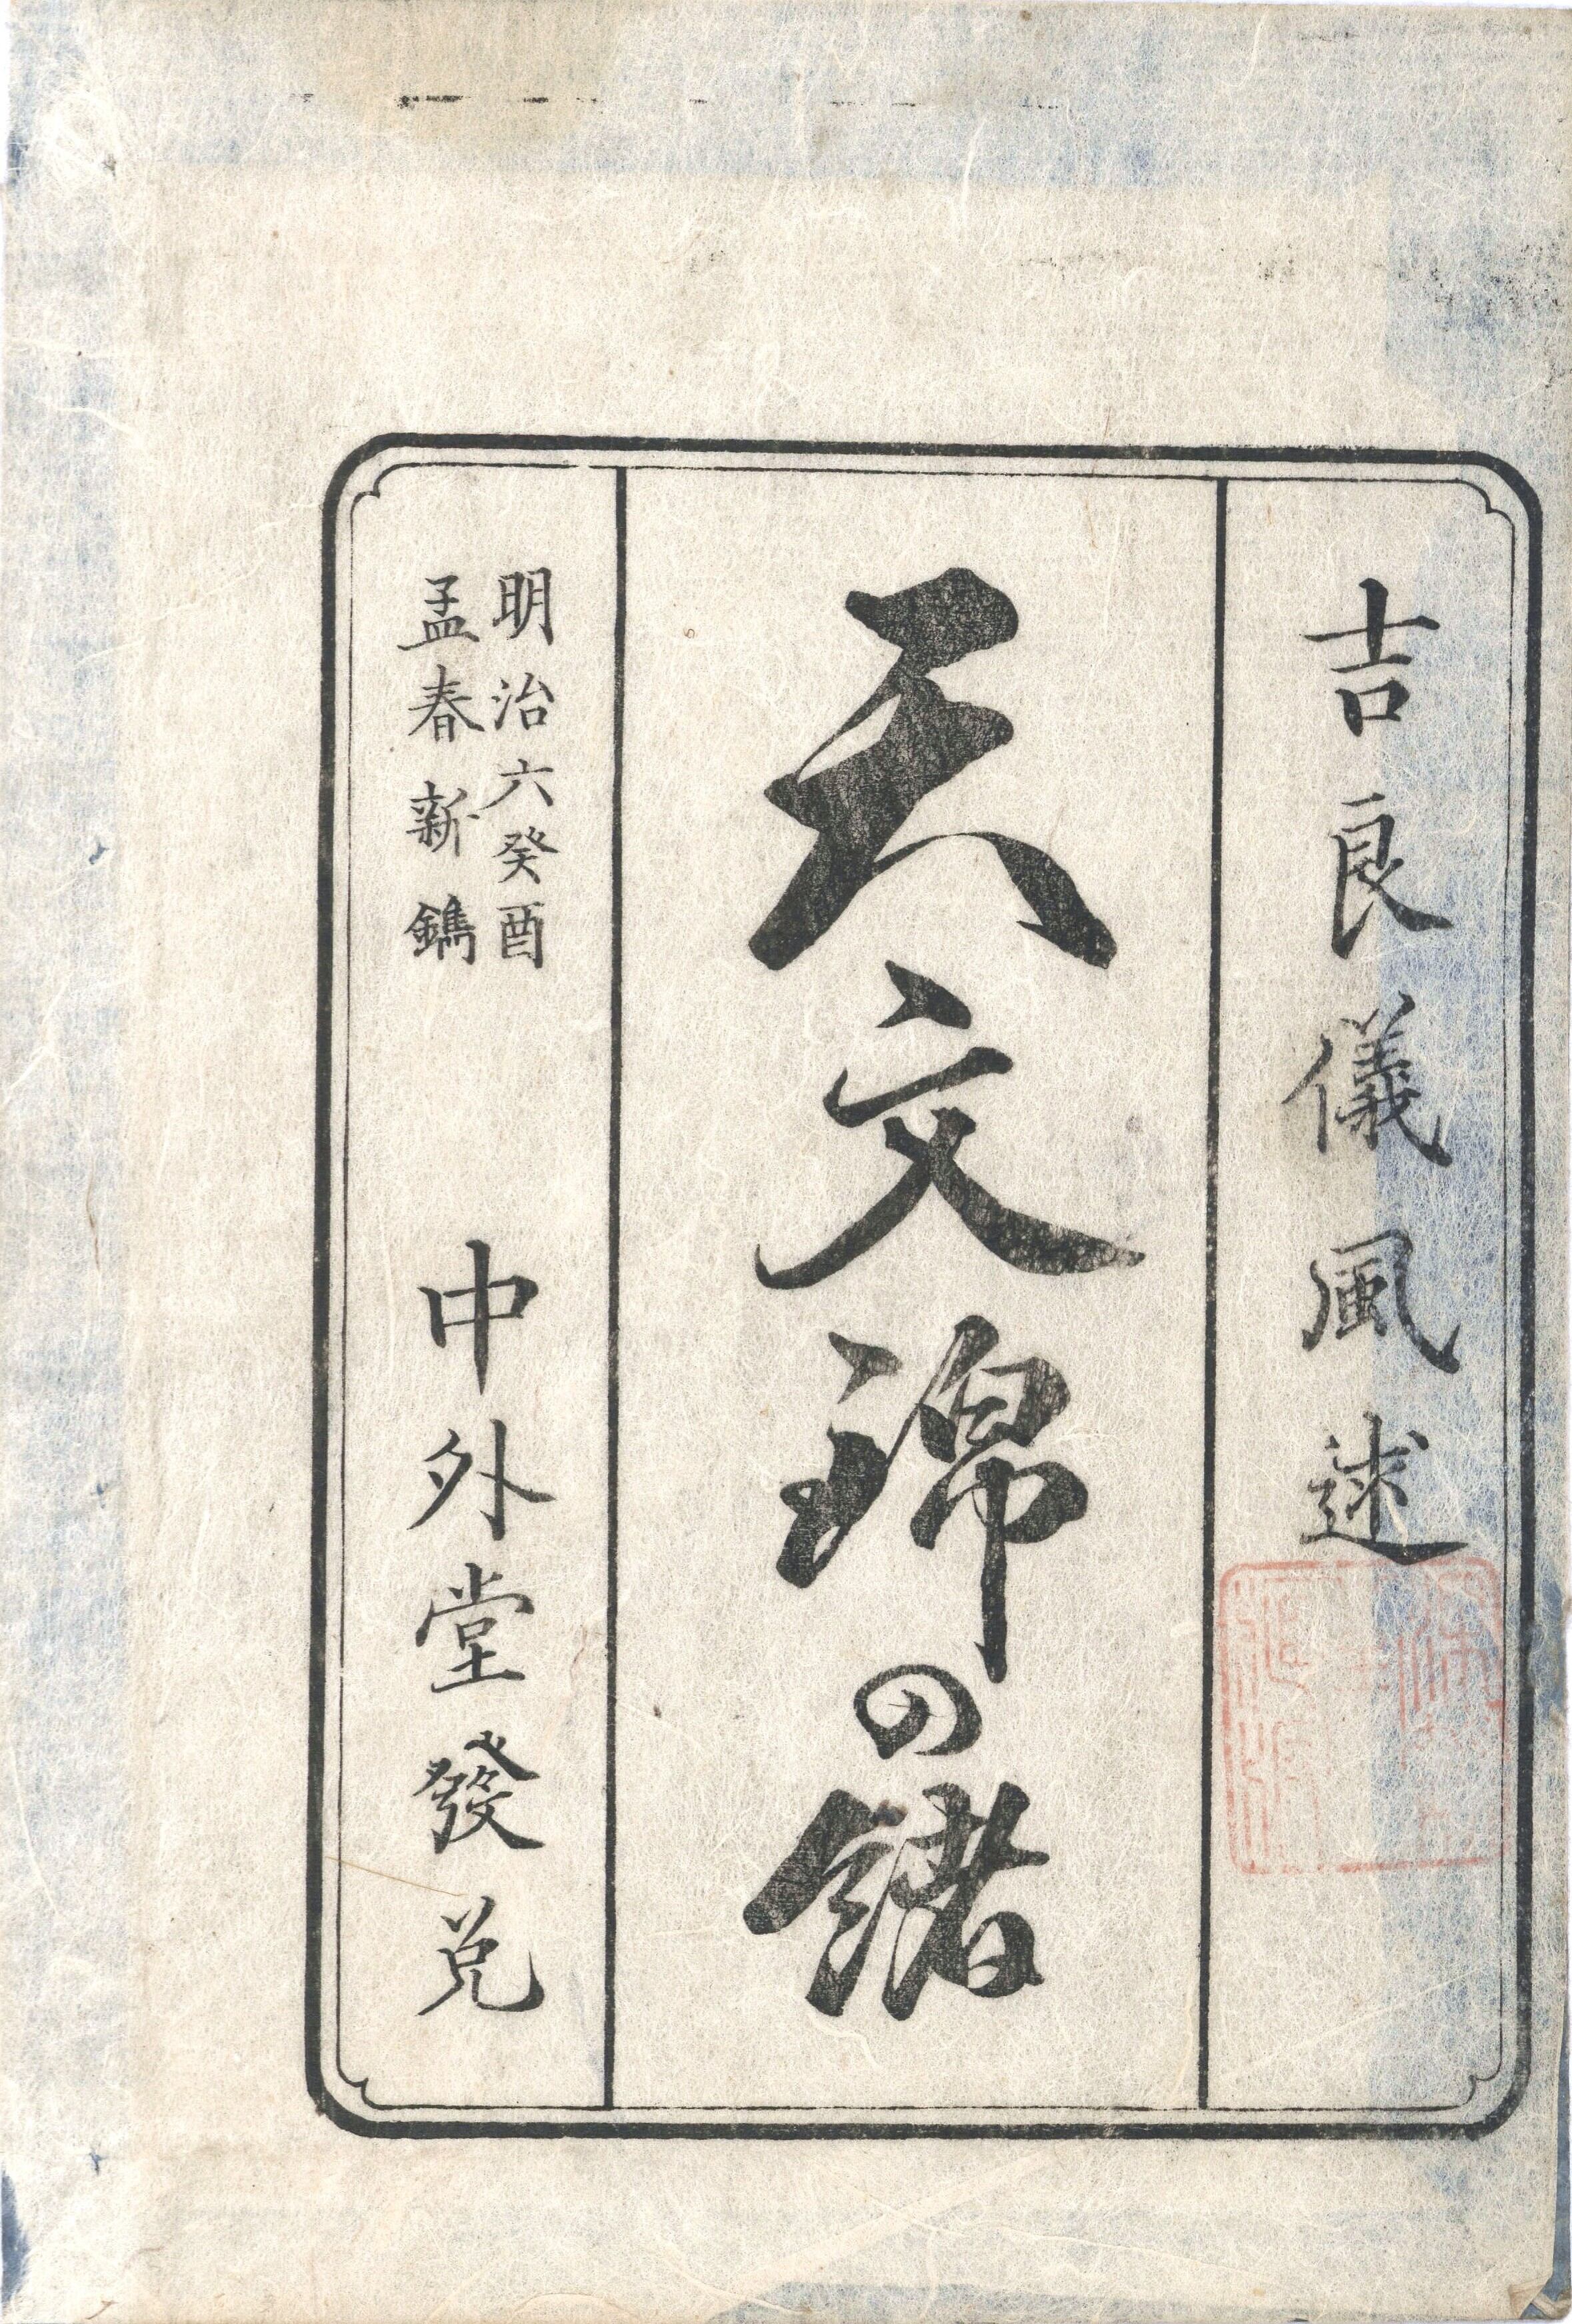 吉良儀風述
天文錦の儲
明治六癸酉
孟春新鐫
中外堂發兌